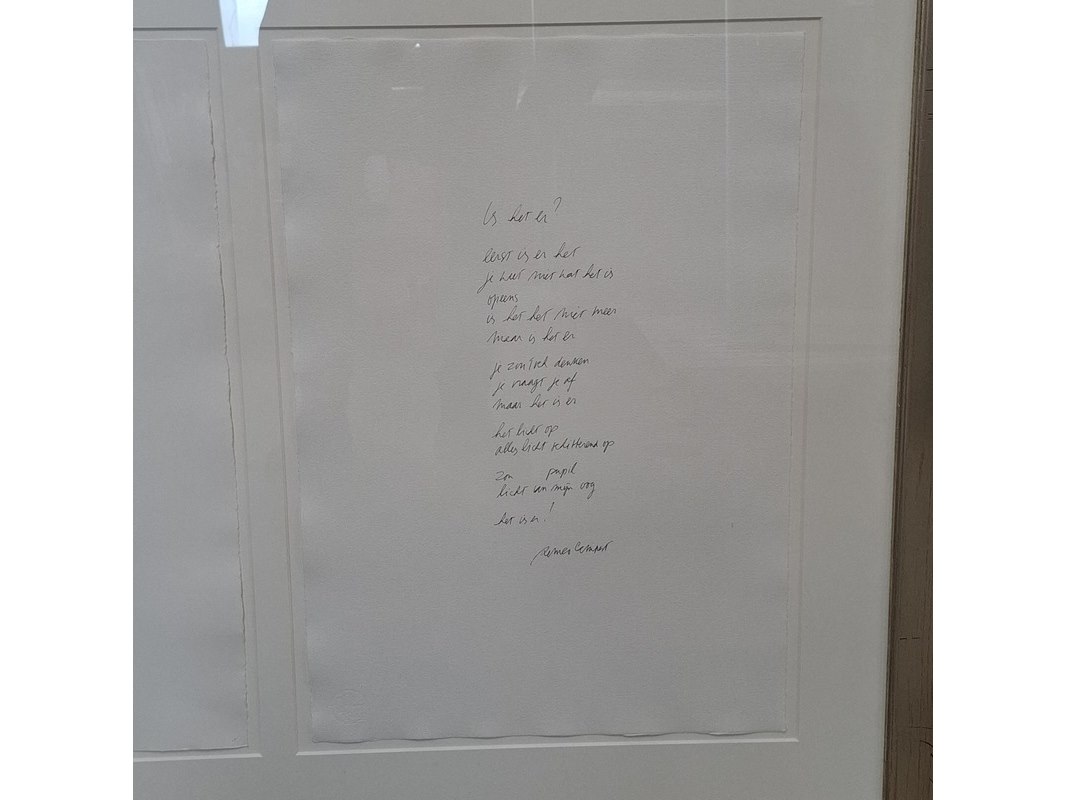 Is het er?
eerst is er het
je weet niet wat het is
opeens
is het het niet meer
maar is het er
je zou toch denken
je vraagt je af
maar het is er
het licht op
alles licht schitterend op
zon pupil
licht van mijn oog
het is er!
Remco Campert